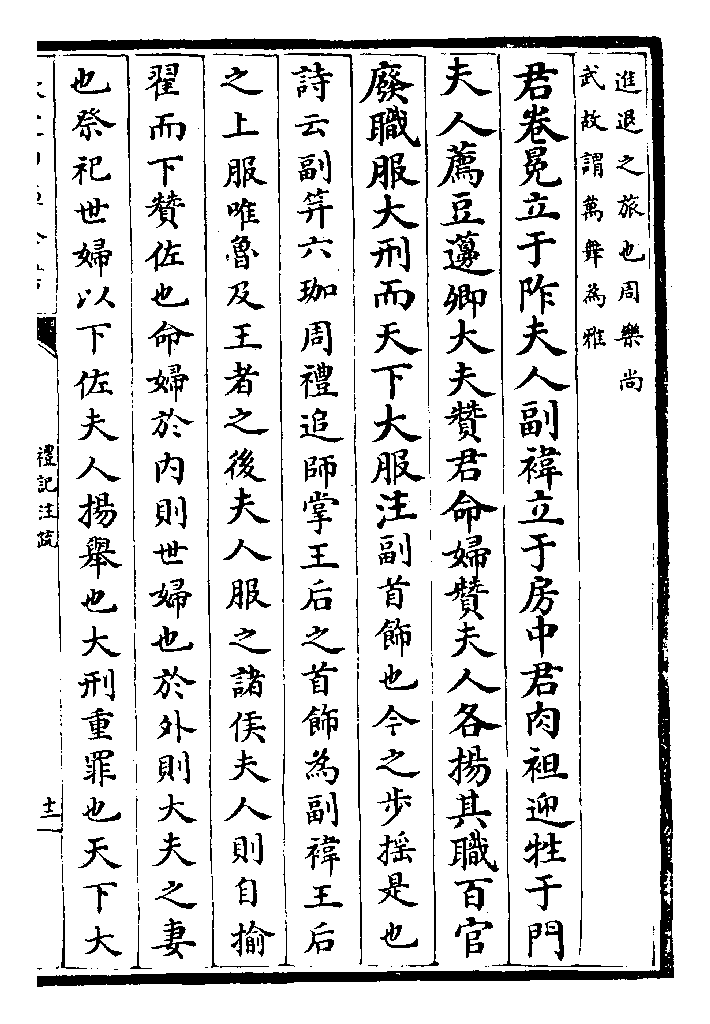 進退之旅也周樂尚
武故謂萬舞為雅
君卷冕立于阼夫人副褘立于房中君肉袒迎牲于門
夫人薦豆籩卿大夫贊君命婦贊夫人各揚其職百官
廢職服大刑而天下大服注副首飾也今之步搖是也
詩云副笄六珈周禮追師掌王后之首飾為副褘王后
之上服唯魯及王者之後夫人服之諸侯夫人則自揄
翟而下贊佐也命婦於内則世婦也於外則大夫之妻
也祭祀世婦以下佐夫人揚舉也大刑重罪也天下大
禮記注疏
十二